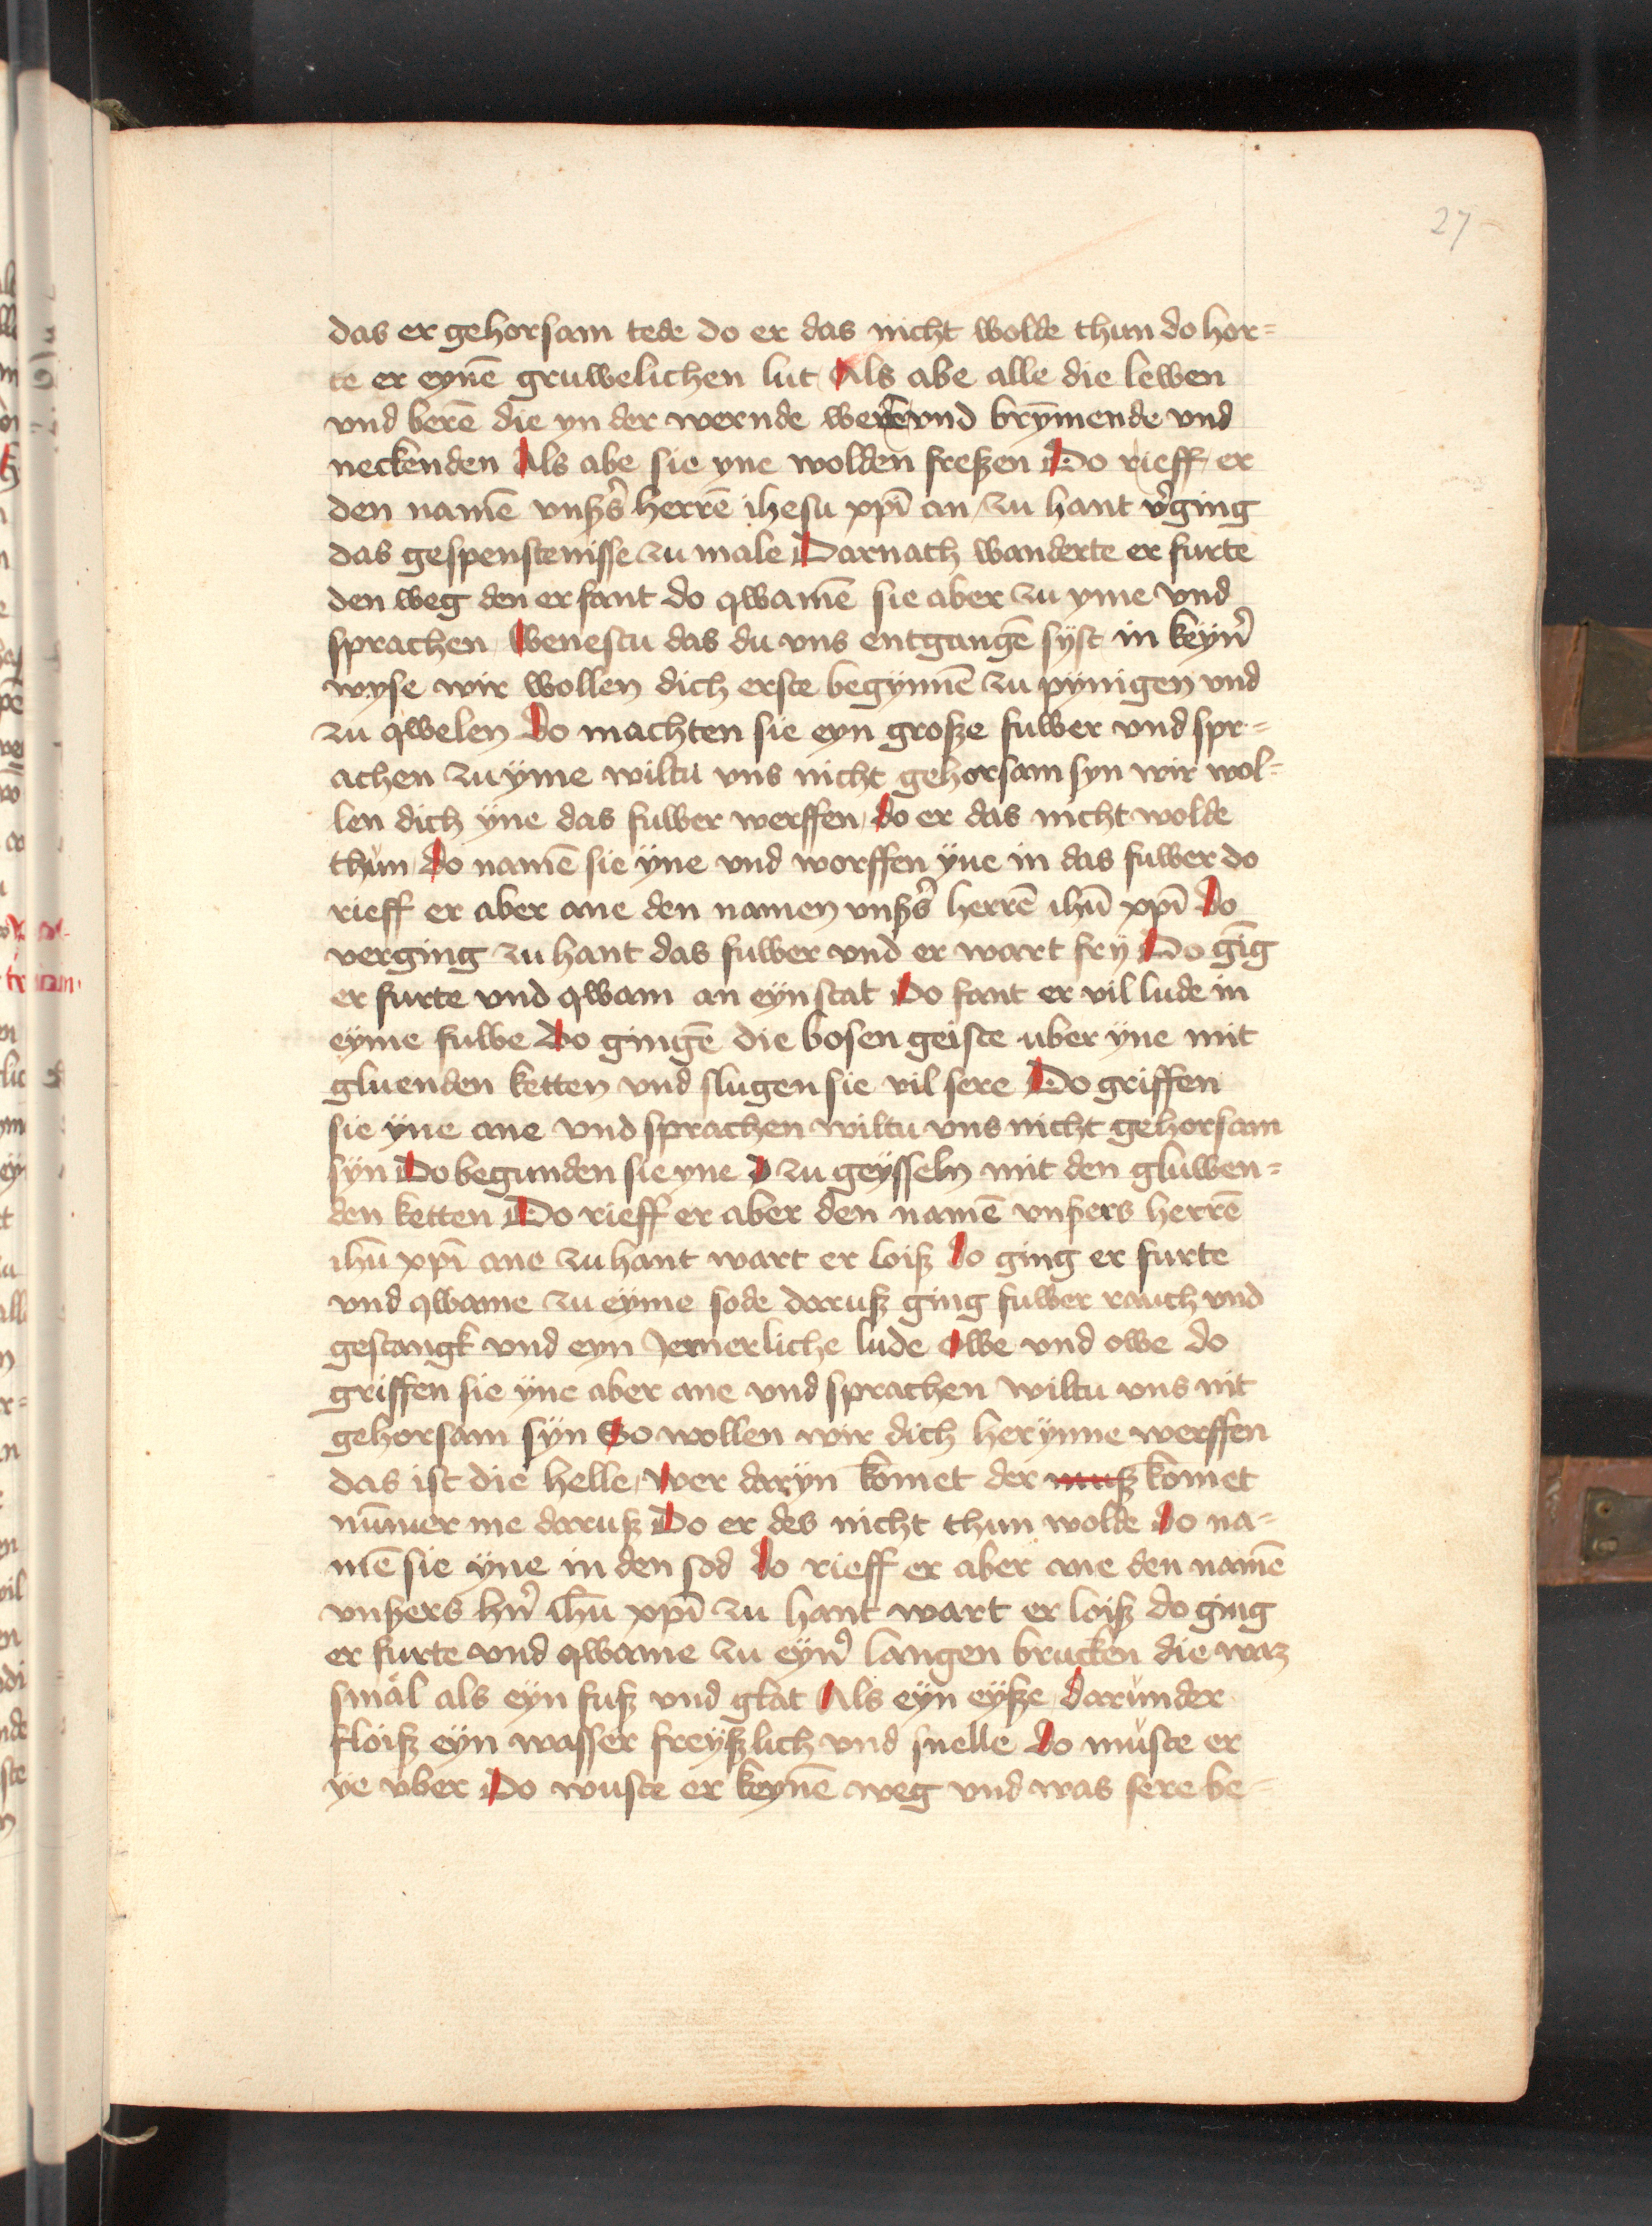 27
das er gehorsam tede do er das nicht wolde thun do hor=
te er eynē gruwelichen lut Als abe alle die lewen
vnd berē die yn der wernde werē vnd brȳmende vnd
neckenden Als abe sie yne wolden freßen Do rieff er
den namē vnßs̄ herrē ihesu xpī an zu hant v̓ging
das gespenstenisse zu male Darnach wanderte er furte
den weg den er fant do qwamē sie aber zu yme vnd
sprachen Wenestu das du vns entgangē syst in keyn̓
wyse wir wollen dich erste begynnē zu pynigen vnd
zu qwelen Do machten sie eyn große fuwer vnd spr=
achen zu ÿme wiltu vns nicht gehorsam syn wir wol=
len dich ÿne das fuwer werffen do er das nicht wolde
thun do namē sie ÿne vnd worffen ÿne in das fuwer do
rieff er aber ane den namen vnßs̄ herrē ihū xpī do
verging zu hant das fuwer vnd er wart frÿ Do gīg
er furte vnd qwam an eÿn stat Do fant er vil lude in
eÿme fuwe do gingē die bosen geiste uber ÿne mit
gluenden ketten vnd slugen sie vil sere Do griffen
sie ÿne ane vnd sprachen wiltu vns nicht gehorsam
sÿn Do begunden sie yne D zu geÿsseln mit den gluwen=
den ketten Do rieff er aber den namē vnßers herrē
ihū xpī ane zu hant wart er loiß do ging er furte
vnd qwame zu eÿme sode daruß ging fuwer rauch vnd
gestangk vnd eyn Jemerliche lude owe vnd owe do
griffen sie ÿne aber ane vnd sprachen wiltu vns nit
gehorsam sÿn So wollen wir dich herÿnne werffen
das ist die helle wer darÿn komet der muß komet
nūmer me daruß Do er des nicht thun wolde do na=
mē sie ÿne in den sod do rieff er aber ane den namē
vnßers hn̓ ihū xpī zu hant wart er loiß do ging
er furte vnd qwame zu eÿn̓ langen brucken die waz
smal als eÿn fuß vnd glat Als eÿn eÿße darunder
floiß eÿn wasser freÿßlich vnd snelle do muste er
ye vber Do wuste er keynē weg vnd was sere be=